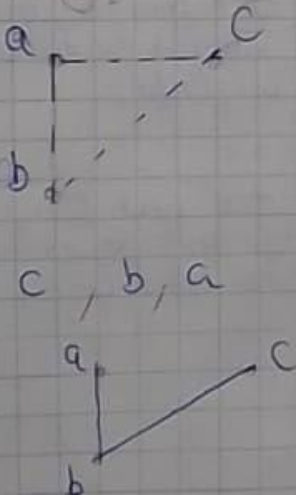 a C
b
c, b, a
a C
b